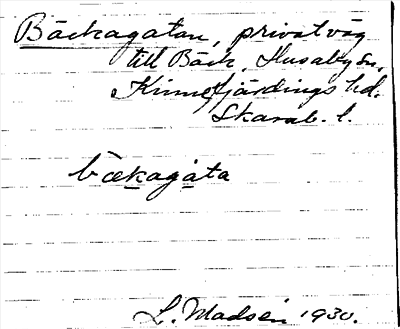 Bäckagatan, privat väg
till Bäck, Husaby sn,
Kinnefjärdings hd.
Skarab. l.
bækagáta
L. Madsén 1930.